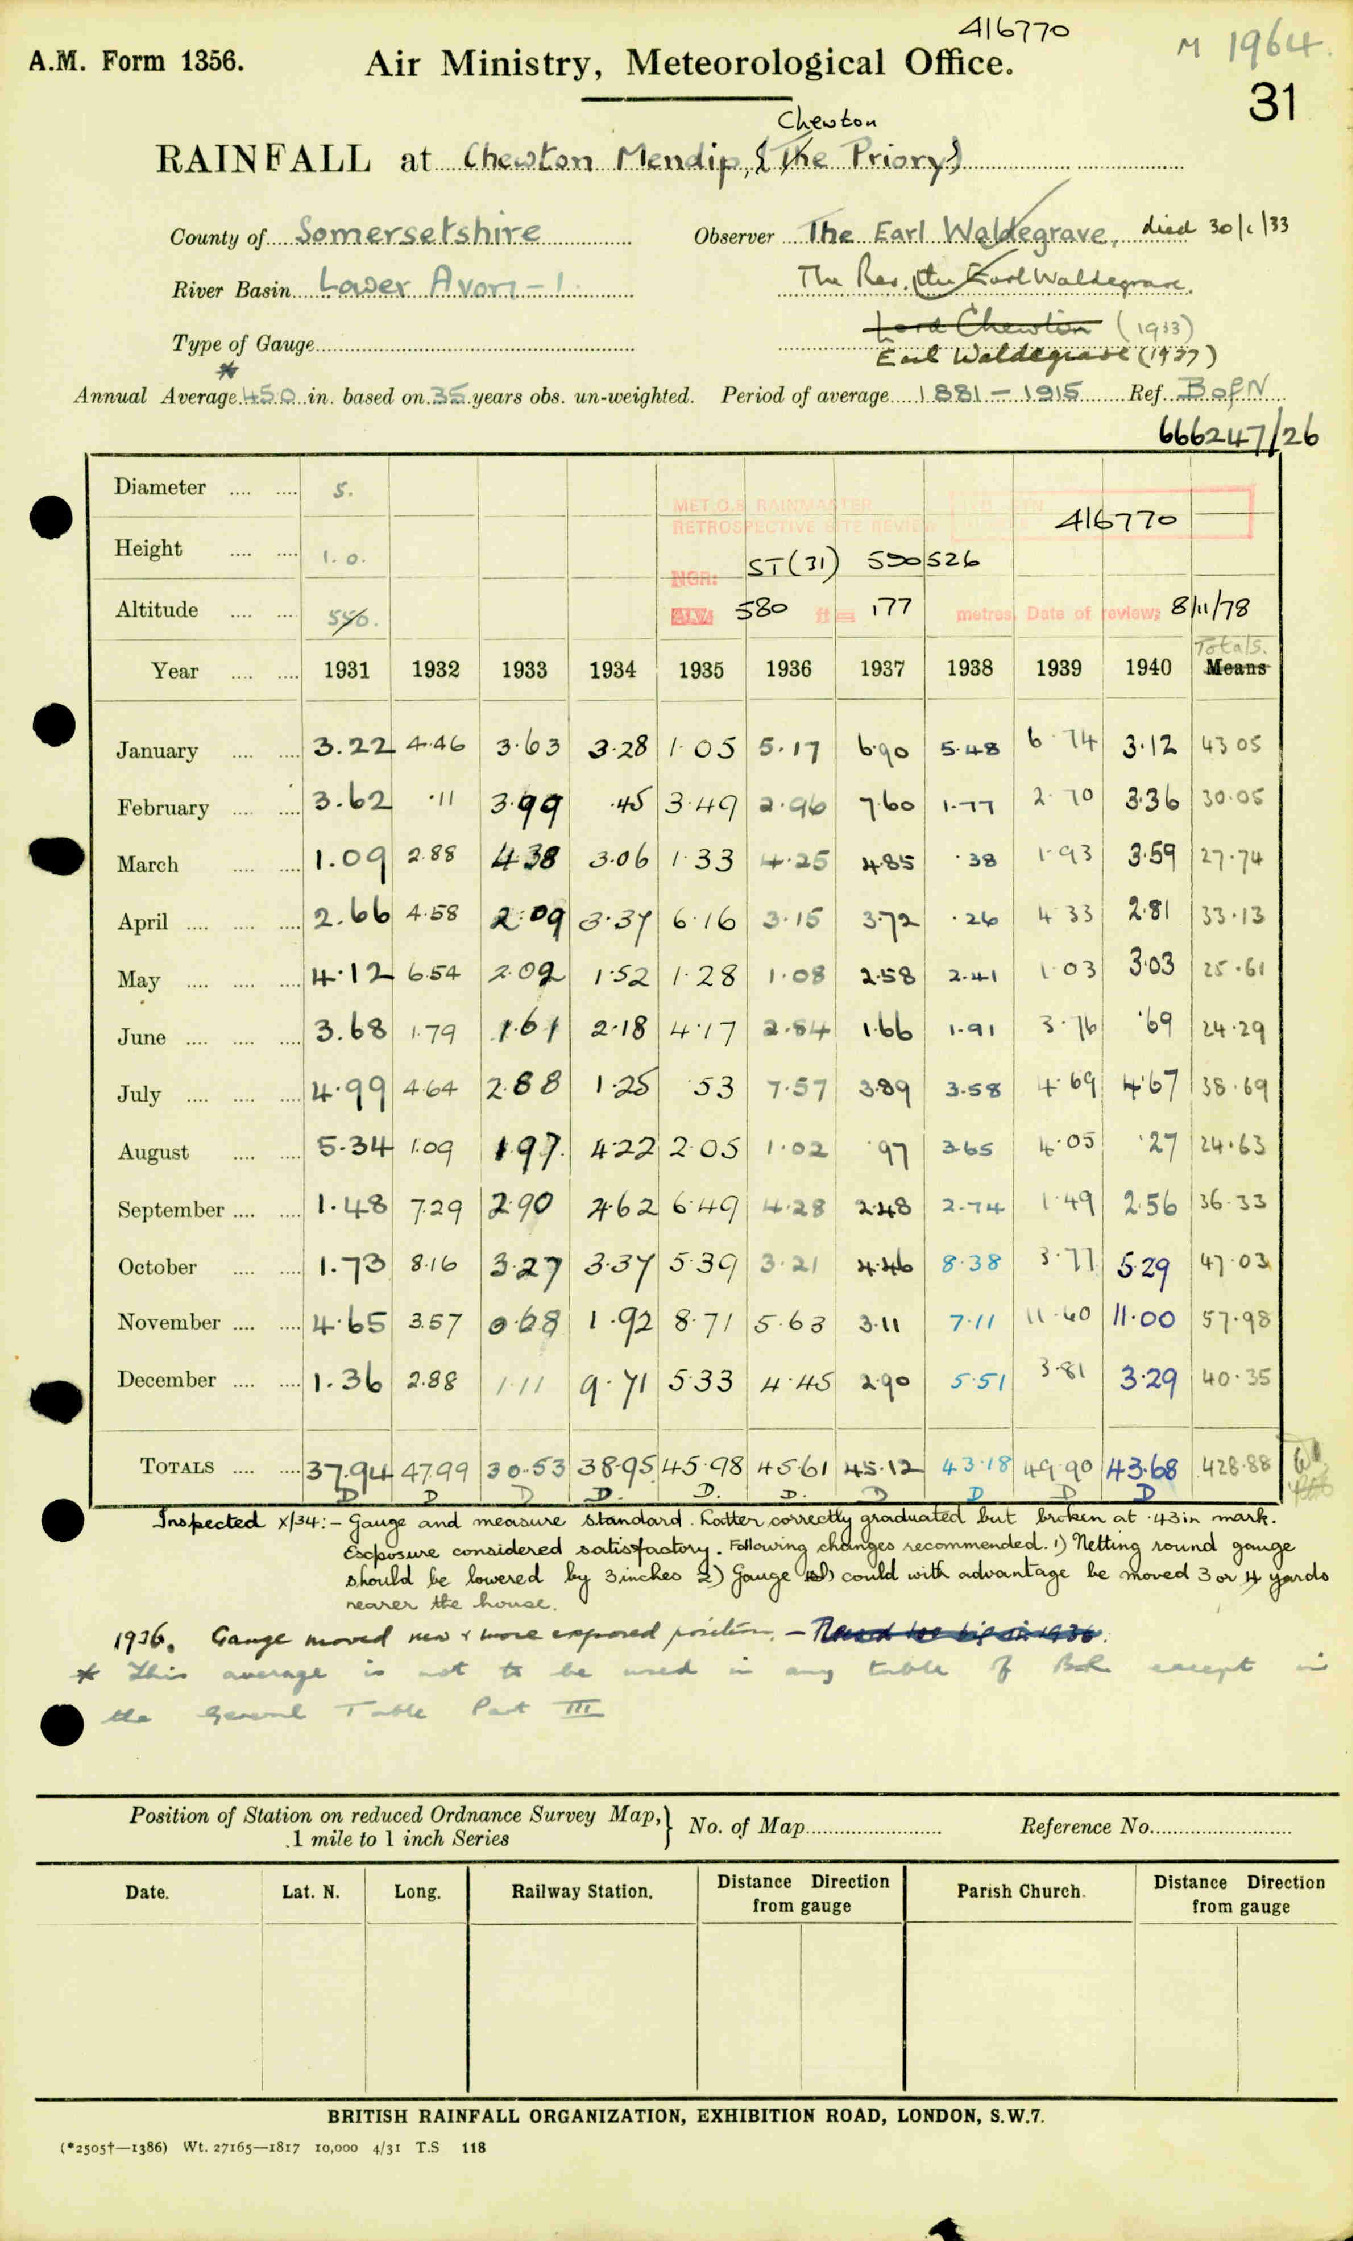 416770
M 1964.
A.M. Form 1356.
Air Ministry, Meteorological Office.
31
Chewton
RAINFALL at Chewton Mendip, {The Priory}
County of Somersetshire Observer The Earl Waldegrave, died 30/1/33
River Basin Lower Avon - 1 The Rev. the Earl Waldegrave.
Lord Chewton (1933)
Type of Gauge Earl Waldegrave (1937)
*
Annual Average 45.0 in. based on 35 years obs. un-weighted. Period of average 1881 - 1915 Ref. B of N
666247/26
Diameter 5.
MET.O.8 RAINMASTER
RETROSPECTIVE SITE REVIEW
416770
Height 1.0.
NGR: ST(31) 590526
Altitude 550. ALT 580 ft = 177 metres. Date of review: 8/11/78
Totals.
Year 1931 1932 1933 1934 1935 1936 1937 1938 1939 1940 Means
January 3.22 4.46 3.63 3.28 1.05 5.17 6.90 5.48 6.74 3.12 43.05
February 3.62 .11 3.99 .45 3.49 2.96 7.60 1.77 2.70 3.36 30.05
March 1.09 2.88 4.38 3.06 1.33 4.25 4.85 .38 1.93 3.59 27.74
April 2.66 4.58 2.09 3.37 6.16 3.15 3.72 .26 4.33 2.81 33.13
May 4.12 6.54 2.02 1.52 1.28 1.08 2.58 2.41 1.03 3.03 25.61
June 3.68 1.79 1.61 2.18 4.17 2.84 1.66 1.91 3.76 .69 24.29
July 4.99 4.64 2.88 1.25 .53 7.57 3.89 3.58 4.69 4.67 38.69
August 5.34 1.09 1.97 4.22 2.05 1.02 .97 3.65 4.05 .27 24.63
September 1.48 7.29 2.90 4.62 6.49 4.28 2.48 2.74 1.49 2.56 36.33
October 1.73 8.16 3.27 3.37 5.39 3.21 4.46 8.38 3.77 5.29 47.03
November 4.65 3.57 0.68 1.92 8.71 5.63 3.11 7.11 11.60 11.00 57.98
December 1.36 2.88 1.11 9.71 5.33 4.45 2.90 5.51 3.81 3.29 40.35
TOTALS 37.94 47.99 30.53 38.95 45.98 45.61 45.12 43.18 49.90 43.68 428.88
D D D D. D. D. D D D D
Inspected X/34:- Gauge and measure standard. Latter correctly graduated but broken at .43in mark.
Exposure considered satisfactory. Following changes recommended. 1) Netting round gauge
should be lowered by 3 inches 2) Gauge could with advantage be moved 3 or 4 yards
nearer the house.
1936. Gauge moved new & more exposed position. -
* This average is not to be used in any table of except in
the General Table Part III
Position of Station on reduced Ordnance Survey Map,} No. of Map Reference No.
1 mile to 1 inch Series
Date. Lat. N. Long. Railway Station. Distance Direction from gauge Parish Church. Distance Direction from gauge
BRITISH RAINFALL ORGANIZATION, EXHIBITION ROAD, LONDON, S.W.7.
(*2505†—1386) Wt. 27165—1817 10,000 4/31 T.S 118